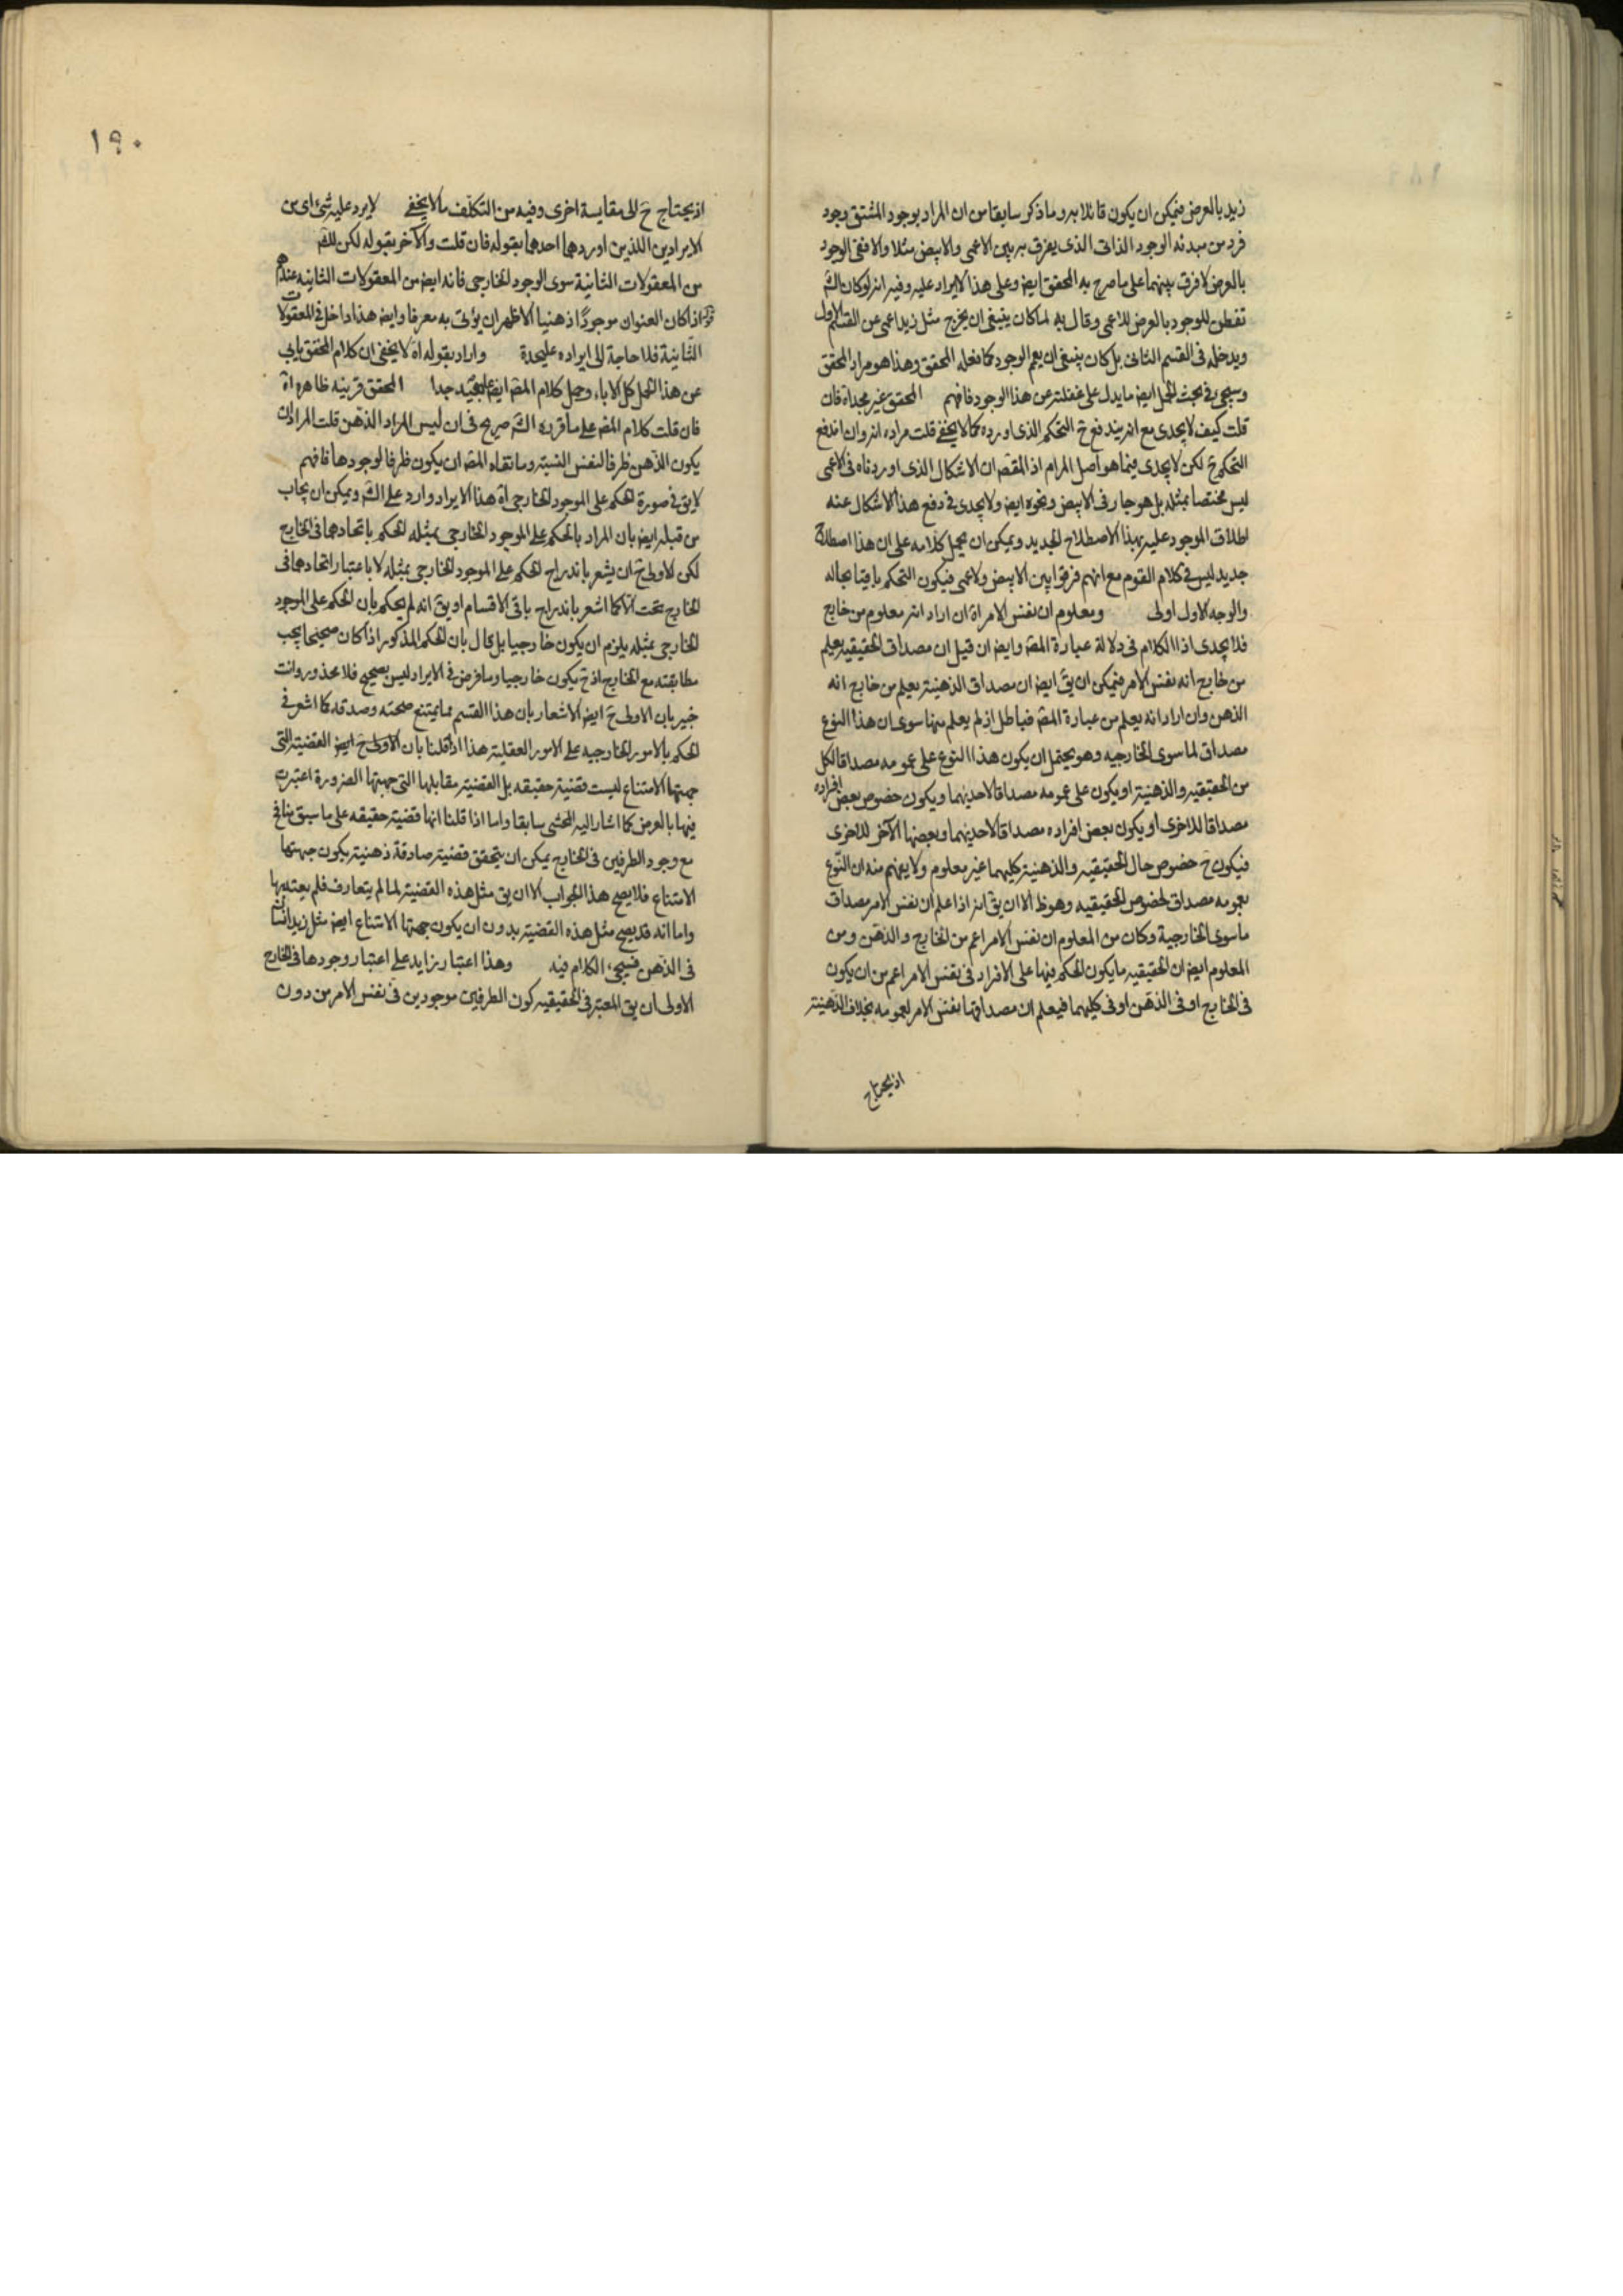 زيد بالعرض فيمكن ان يكون قائلا به وما ذكر سابقا من ان المراد بوجود المشتق وجود
فرد من مبدئه الوجود الذاتى الذى يفرق به بين الاعمى والابيض مثلا والا ففى الوجود
بالعرض لا فرق بينهما على ما صرح به المحقق ايض وعلى هذا لا ايراد عليه وفيه انه لو كان الش
تفطن للوجود بالعرض للاعمى وقال به لما كان ينبغى ان يخرج مثل زيد اعمى عن القسم الاول
ويدخله فى القسم الثانى بل كان ينبغى ان يعم الوجود كما فعله المحقق وهذا هو مراد المحقق
وسيجئ فى بحث الحمل ايض ما يدل على غفلته عن هذا الوجود فافهم المحقق غير مجد اة فان
قلت كيف لا يجدى مع انه يندفع ح التحكم الذى اورده كما لا يخفى قلت مراده انه وان اندفع
التحكم ح لكن لا يجدى فيما هو اصل المرام اذ المقص ان الاشكال الذى اوردناه فى الاعمى
ليس مختصا بمثله بل هو جار فى الابيض ونحوه ايض ولا يجدى فى دفع هذا الاشكال عنه
اطلاق الموجود عليه بهذا الاصطلاح الجديد ويمكن ان يحمل كلامه على ان هذا اصطلاح
جديد ليس فى كلام القوم مع انهم فرقوا بين الابيض ولاعمى فيكون التحكم باقيا بحاله
والوجه الاول اولى ومعلوم ان نفس الامر اة ان اراد انه معلوم من خارج
فلا يجدى اذ الكلام فى دلالة عبارة المص وايض ان قيل ان مصداق الحقيقيه يعلم
من خارج انه نفس الامر فيمكن ان يق ايض ان مصداق الذهنية يعلم من خارج انه
الذهن وان اراد انه يعلم من عبارة المص فباطل اذ لم يعلم منها سوى ان هذا النوع
مصداق لما سوى الخارجيه وهو يحتمل ان يكون هذا النوع على عمومه مصداقا لكل
من الحقيقيه والذهنية او يكون على عمومه مصداقا لاحديهما ويكون خصوص بعض افراده
مصداقا للاخرى او يكون بعض افراده مصداقا لاحديهما وبعضها الآخر للاخرى
فيكون ح خصوص حال الحقيقيه والذهنية كليهما غير معلوم ولا يفهم منه ان النوع
بعمومه مصداق لخصوص الحقيقيه وهو ظ الا ان يق انه اذا علم ان نفس الامر مصداق
ما سوى الخارجية وكان من المعلوم ان نفس الامر اعم من الخارج والذهن ومن
المعلوم ايض ان الحقيقيه ما يكون الحكم فيها على الافراد فى نفس الامر اعم من ان يكون
فى الخارج او فى الذهن او فى كليهما فيعلم ان مصداقها نفس الامر بعمومه بخلاف الذهنية
اذ يحتاج
١٩٠
اذ يحتاج ح الى مقايسة اخرى وفيه من التكلف ما لا يخفى لا يرد عليه شئ اى من
الايرادين اللذين اوردهما احدهما بقوله فان قلت والآخر بقوله لكن
من المعقولات الثانية سوى الوجود الخارجى فانه ايض من المعقولات الثانيه عندهم
اذا كان العنوان موجودا ذهنيا الاظهر ان يؤتى به معرفا وايض هذا داخل فى المعقولات
الثانية فلا حاجة الى ايراده عليحدة واراد بقوله اة لا يخفى ان كلام المحقق يابى
عن هذا الحمل كل الاباء وحمل كلام المص ايض عليه بعيد جدا المحقق قرينه ظاهره اة
فان قلت كلام المص على ما قرره الش صريح فى ان ليس المراد الذهن قلت المراد ان
يكون الذهن ظرفا لنفس النسبة وما نفاه المص ان يكون ظرفا لوجودها فافهم
لا يق فى صورة الحكم على الموجود الخارجى اة هذا الايراد وارد على الش ويمكن ان يجاب
من قبله ايض بان المراد بالحكم على الموجود الخارجى بمثله الحكم باتحادهما فى الخارج
لكن الاولى ح ان يشعر باندراج الحكم على الموجود الخارجى بمثله لا باعتبار اتحادهما فى
الخارج تحت الا كما اشعر باندراج باقى الاقسام او يق انه لم يحكم بان الحكم على الموجود
الخارجى بمثله يلزم ان يكون خارجيا بل قال بان الحكم المذكور اذا كان صحيحا يجب
مطابقته مع الخارج اذ ح يكون خارجيا وما فرض فى الايراد ليس بصحيح فلا محذور وانت
خبير بان الاولى ح ايض الاشعار بان هذا القسم مما يمتنع صحته وصدقه كما اشعر فى
الحكم بالامور الخارجيه على الامور العقلية هذا اذا قلنا بان الاولى ح ايض القضية التى
جهتها الامتناع ليست قضية حقيقه بل القضية مقابلها التى جهتها الضرورة اعتبرت
فيها بالعرض كما اشار اليه المحشى سابقا واما اذا قلنا انها قضية حقيقه على ما سبق ينافى
مع وجود الطرفين فى الخارج يمكن ان يتحقق قضية صادقة ذهنية يكون جهتها
الامتناع فلا يصح هذا الجواب الا ان يق مثل هذه القضية لما لم يتعارف فلم يعتد بها
واما انه قد يصح مثل هذه القضية بدون ان يكون جهتها الامتناع ايض مثل زيد انسان
فى الذهن فسيجئ الكلام فيه وهذا اعتبار زايد على اعتبار وجودها فى الخارج
الاولى ان يق المعتبر فى الحقيقيه كون الطرفين موجودين فى نفس الامر من دون